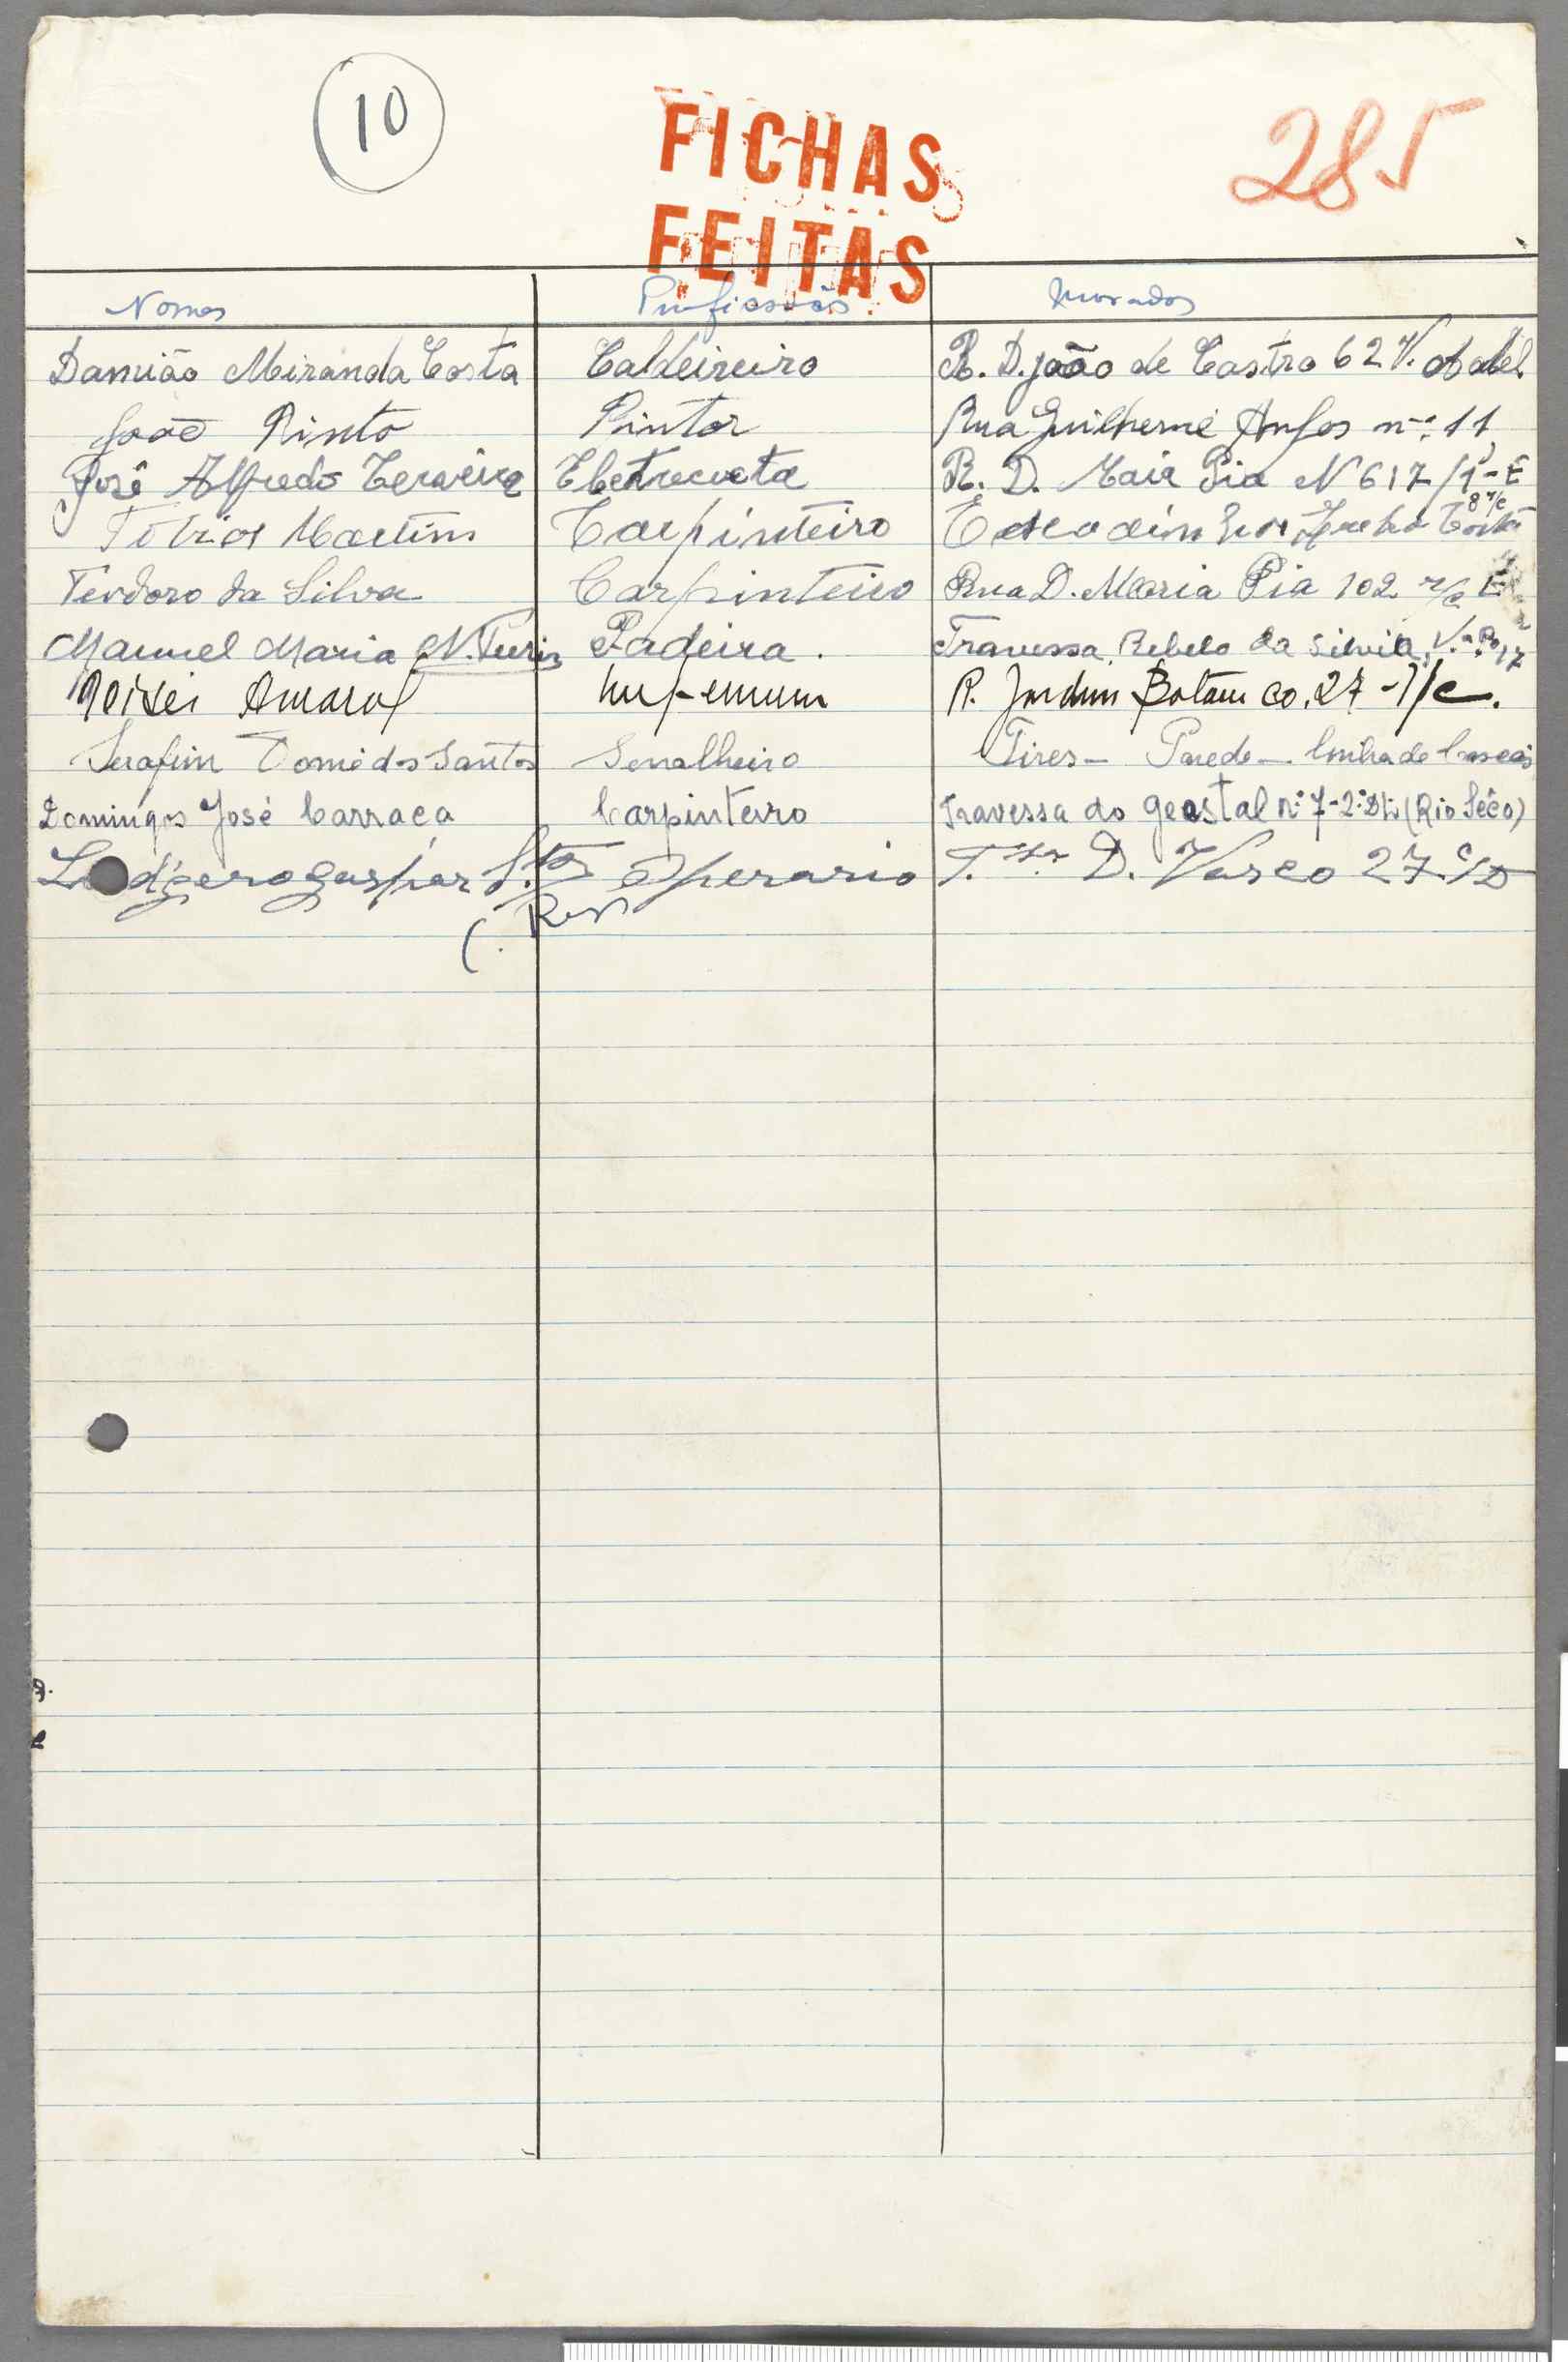 10
FICHAS
FEITAS
285
Nomes Profissões Moradas
Damião Miranda Costa Caldeireiro R. D. joão de Castro 62 V. Abel
João Pinto Pintor Rua Guilherme Anjos nº 11
José Alfredo R. D. Maia Pia N 617/1º-E
Tobias Martins Carpinteiro
Teodoro da Silva Carpinteiro Rua D. Maria Pia 102 r/c E
Manuel Maria N. Padeira. Travessa Rebelo da Silvia, 17
Moisei Amaral R. Jardim Botanico, 27-r/c.
Serafim Tomé dos Santos Serralheiro Tires - Parede - linha de Cascais
Domingos José Carraça Carpinteiro Travessa do geastal nº 7-2º Dto (Rio Sêco)
Gaspar Stos Operario T.ssa D. Vasco 27 c/D